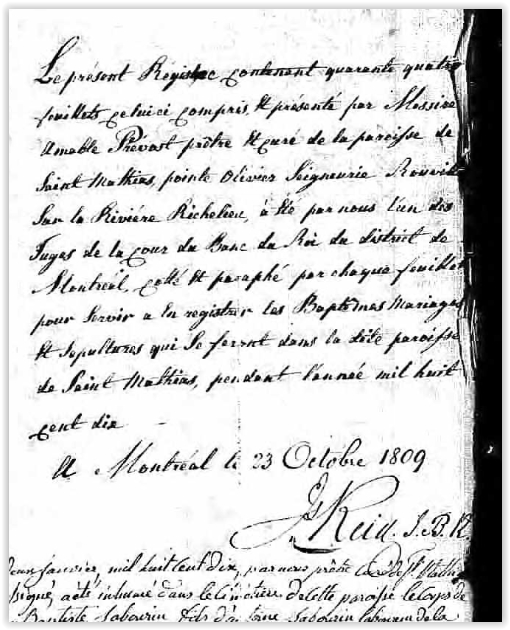 Le présent Régistre contenant quarante quatre
feuillets celui ci compris, et présenté par Messire
Amable Prévost prêtre et curé de la paroisse de
Saint Mathias, pointe Olivier Seigneurie Rouville
Sur la Riviére Richelieu, à été par nous l'un des
Juges de la cour du Banc du Roi du district de
Montréal, cotté et paraphé par chaque feuillet
pour servir a En registrer les Baptemes Mariages
et Sepultures qui Se feront dans la dite paroisse
de Saint Mathias, pendant l'année mil huit
cent dix
A Montréal le 23 Octobre 1809
Js Reid. J.B.R
janvier, mil huit cent dix, par nous prêtre Curé de St Mathias
signé, a été inhumé dans le cimetière de cette paroisse le Corps de
Baptiste Sabourin fils d'antoine Sabourin laboureur de la